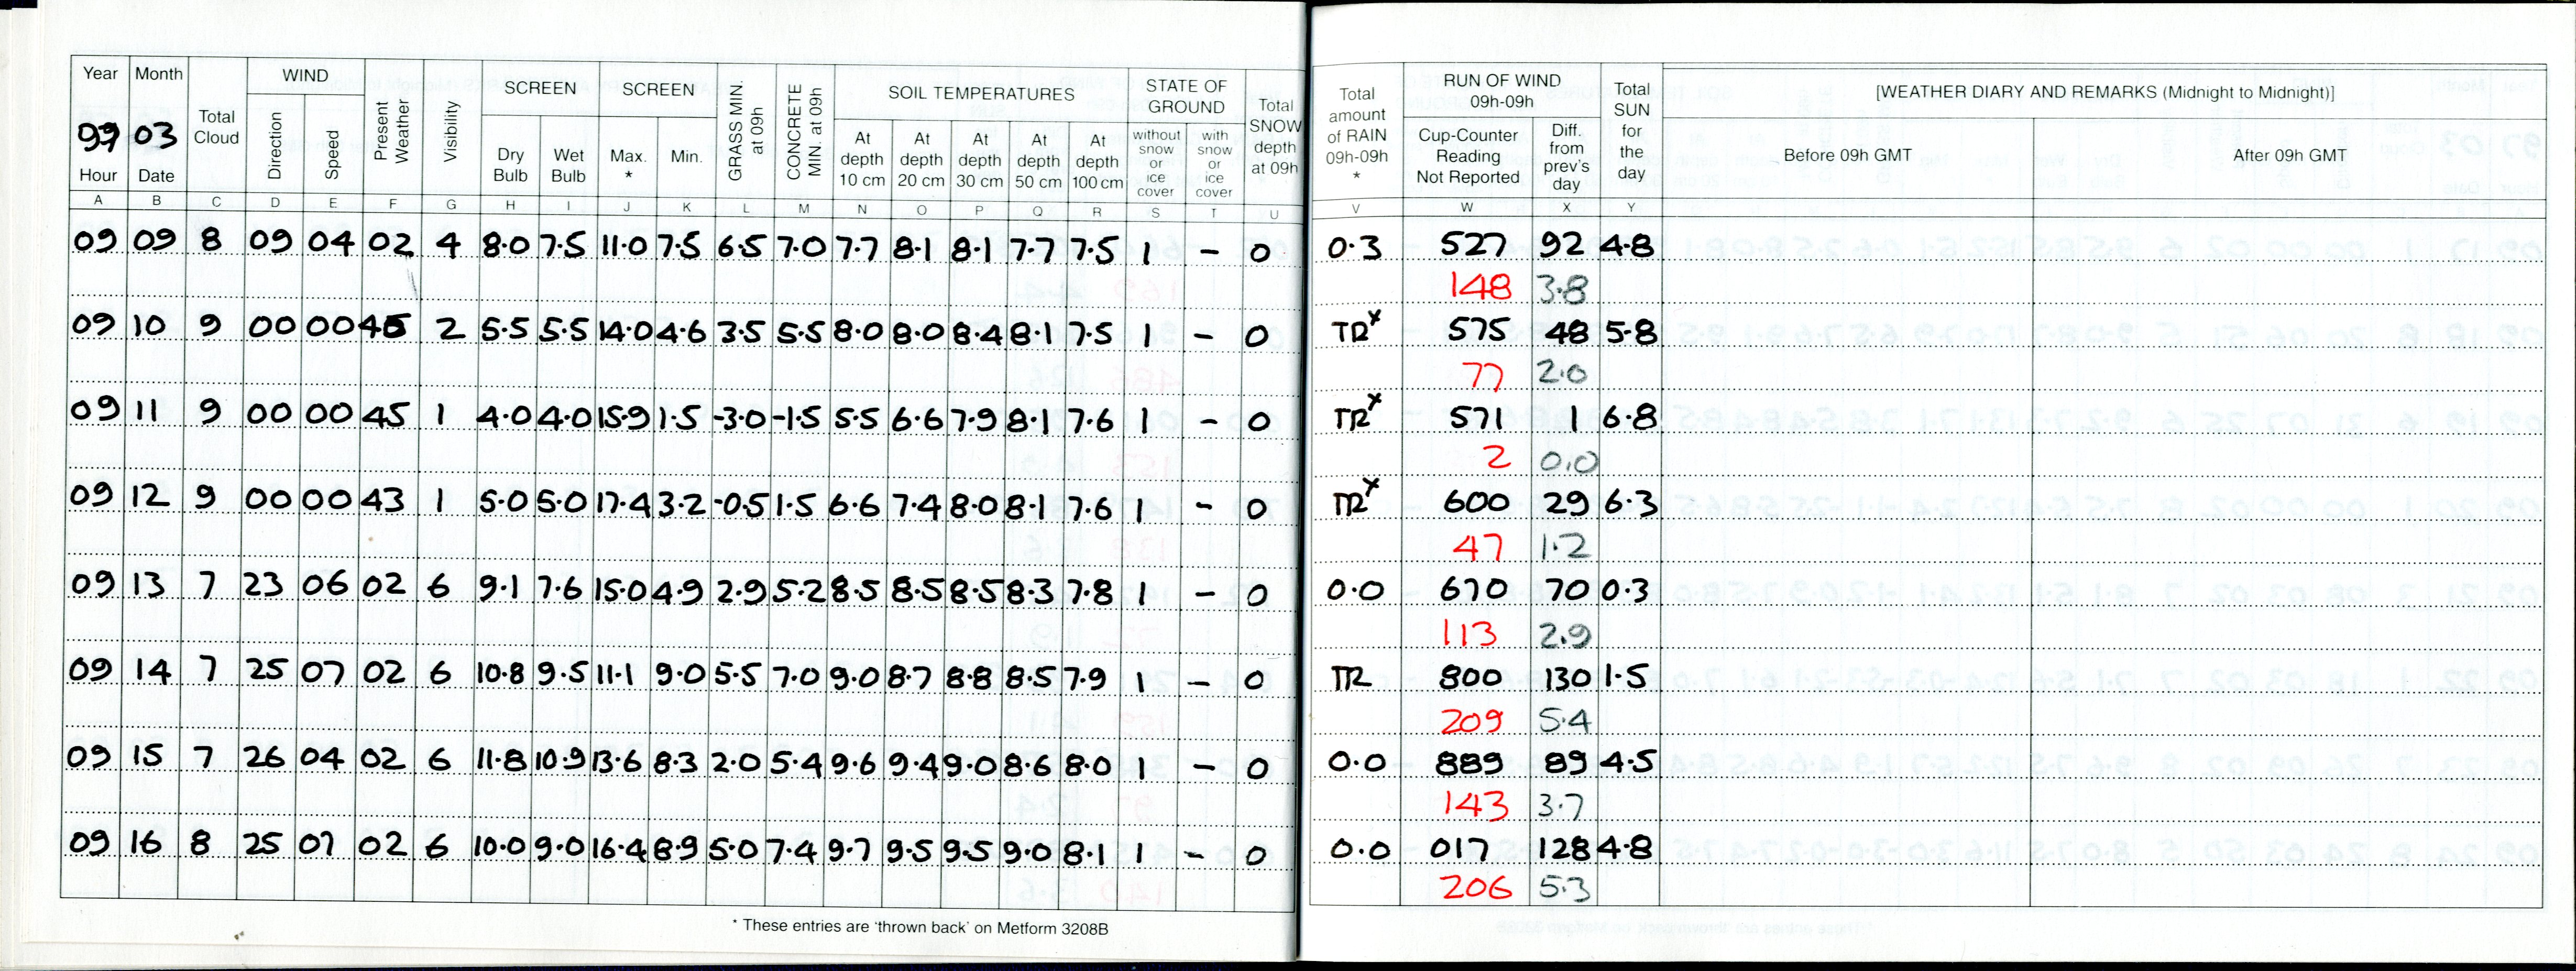 Year Month Total Cloud WIND Present Weather Visibility SCREEN SCREEN GRASS MIN. at 09h CONCRETE MIN. at 09h SOIL TEMPERATURES STATE OF GROUND Total SNOW depth at 09h Total amount of RAIN 09h-09h * RUN OF WIND 09h-09h Total SUN for the day [WEATHER DIARY AND REMARKS (Midnight to Midnight)]
03
Hour Date Direction Speed Dry Bulb Wet Bulb Max. * Min. At depth 10 cm At depth 20 cm At depth 30 cm At depth 50 cm At depth 100 cm without snow or ice cover with snow or ice cover Cup-Counter Reading Not Reported Diff. from prev's day Before 09h GMT After 09h GMT
A B C D E F G H I J K L M N O P Q R S T U V W X Y
09 09 8 09 04 02 4 8.0 7.5 11.0 7.5 6.5 7.0 7.7 8.1 8.1 7.7 7.5 1 - 0 0.3 527 92 4.8
148 3.8
09 10 9 00 00 45 2 5.5 5.5 14.0 4.6 3.5 5.5 8.0 8.0 8.4 8.1 7.5 1 - 0 TRx 575 48 5.8
77 2.0
09 11 9 00 00 45 1 4.0 4.0 15.9 1.5 -3.0 -1.5 5.5 6.6 7.9 8.1 7.6 1 - 0 TRx 571 1 6.8
2 0.0
09 12 9 00 00 43 1 5.0 5.0 17.4 3.2 -0.5 1.5 6.6 7.4 8.0 8.1 7.6 1 - 0 TRx 600 29 6.3
47 1.2
09 13 7 23 06 02 6 9.1 7.6 15.0 4.9 2.9 5.2 8.5 8.5 8.5 8.3 7.8 1 - 0 0.0 670 70 0.3
113 2.9
09 14 7 25 07 02 6 10.8 9.5 11.1 9.0 5.5 7.0 9.0 8.7 8.8 8.5 7.9 1 - 0 TR 800 130 1.5
209 5.4
09 15 7 26 04 02 6 11.8 10.9 13.6 8.3 2.0 5.4 9.6 9.4 9.0 8.6 8.0 1 - 0 0.0 889 89 4.5
143 3.7
09 16 8 25 07 02 6 10.0 9.0 16.4 8.9 5.0 7.4 9.7 9.5 9.5 9.0 8.1 1 - 0 0.0 017 128 4.8
206 5.3
* These entries are 'thrown back' on Metform 3208B